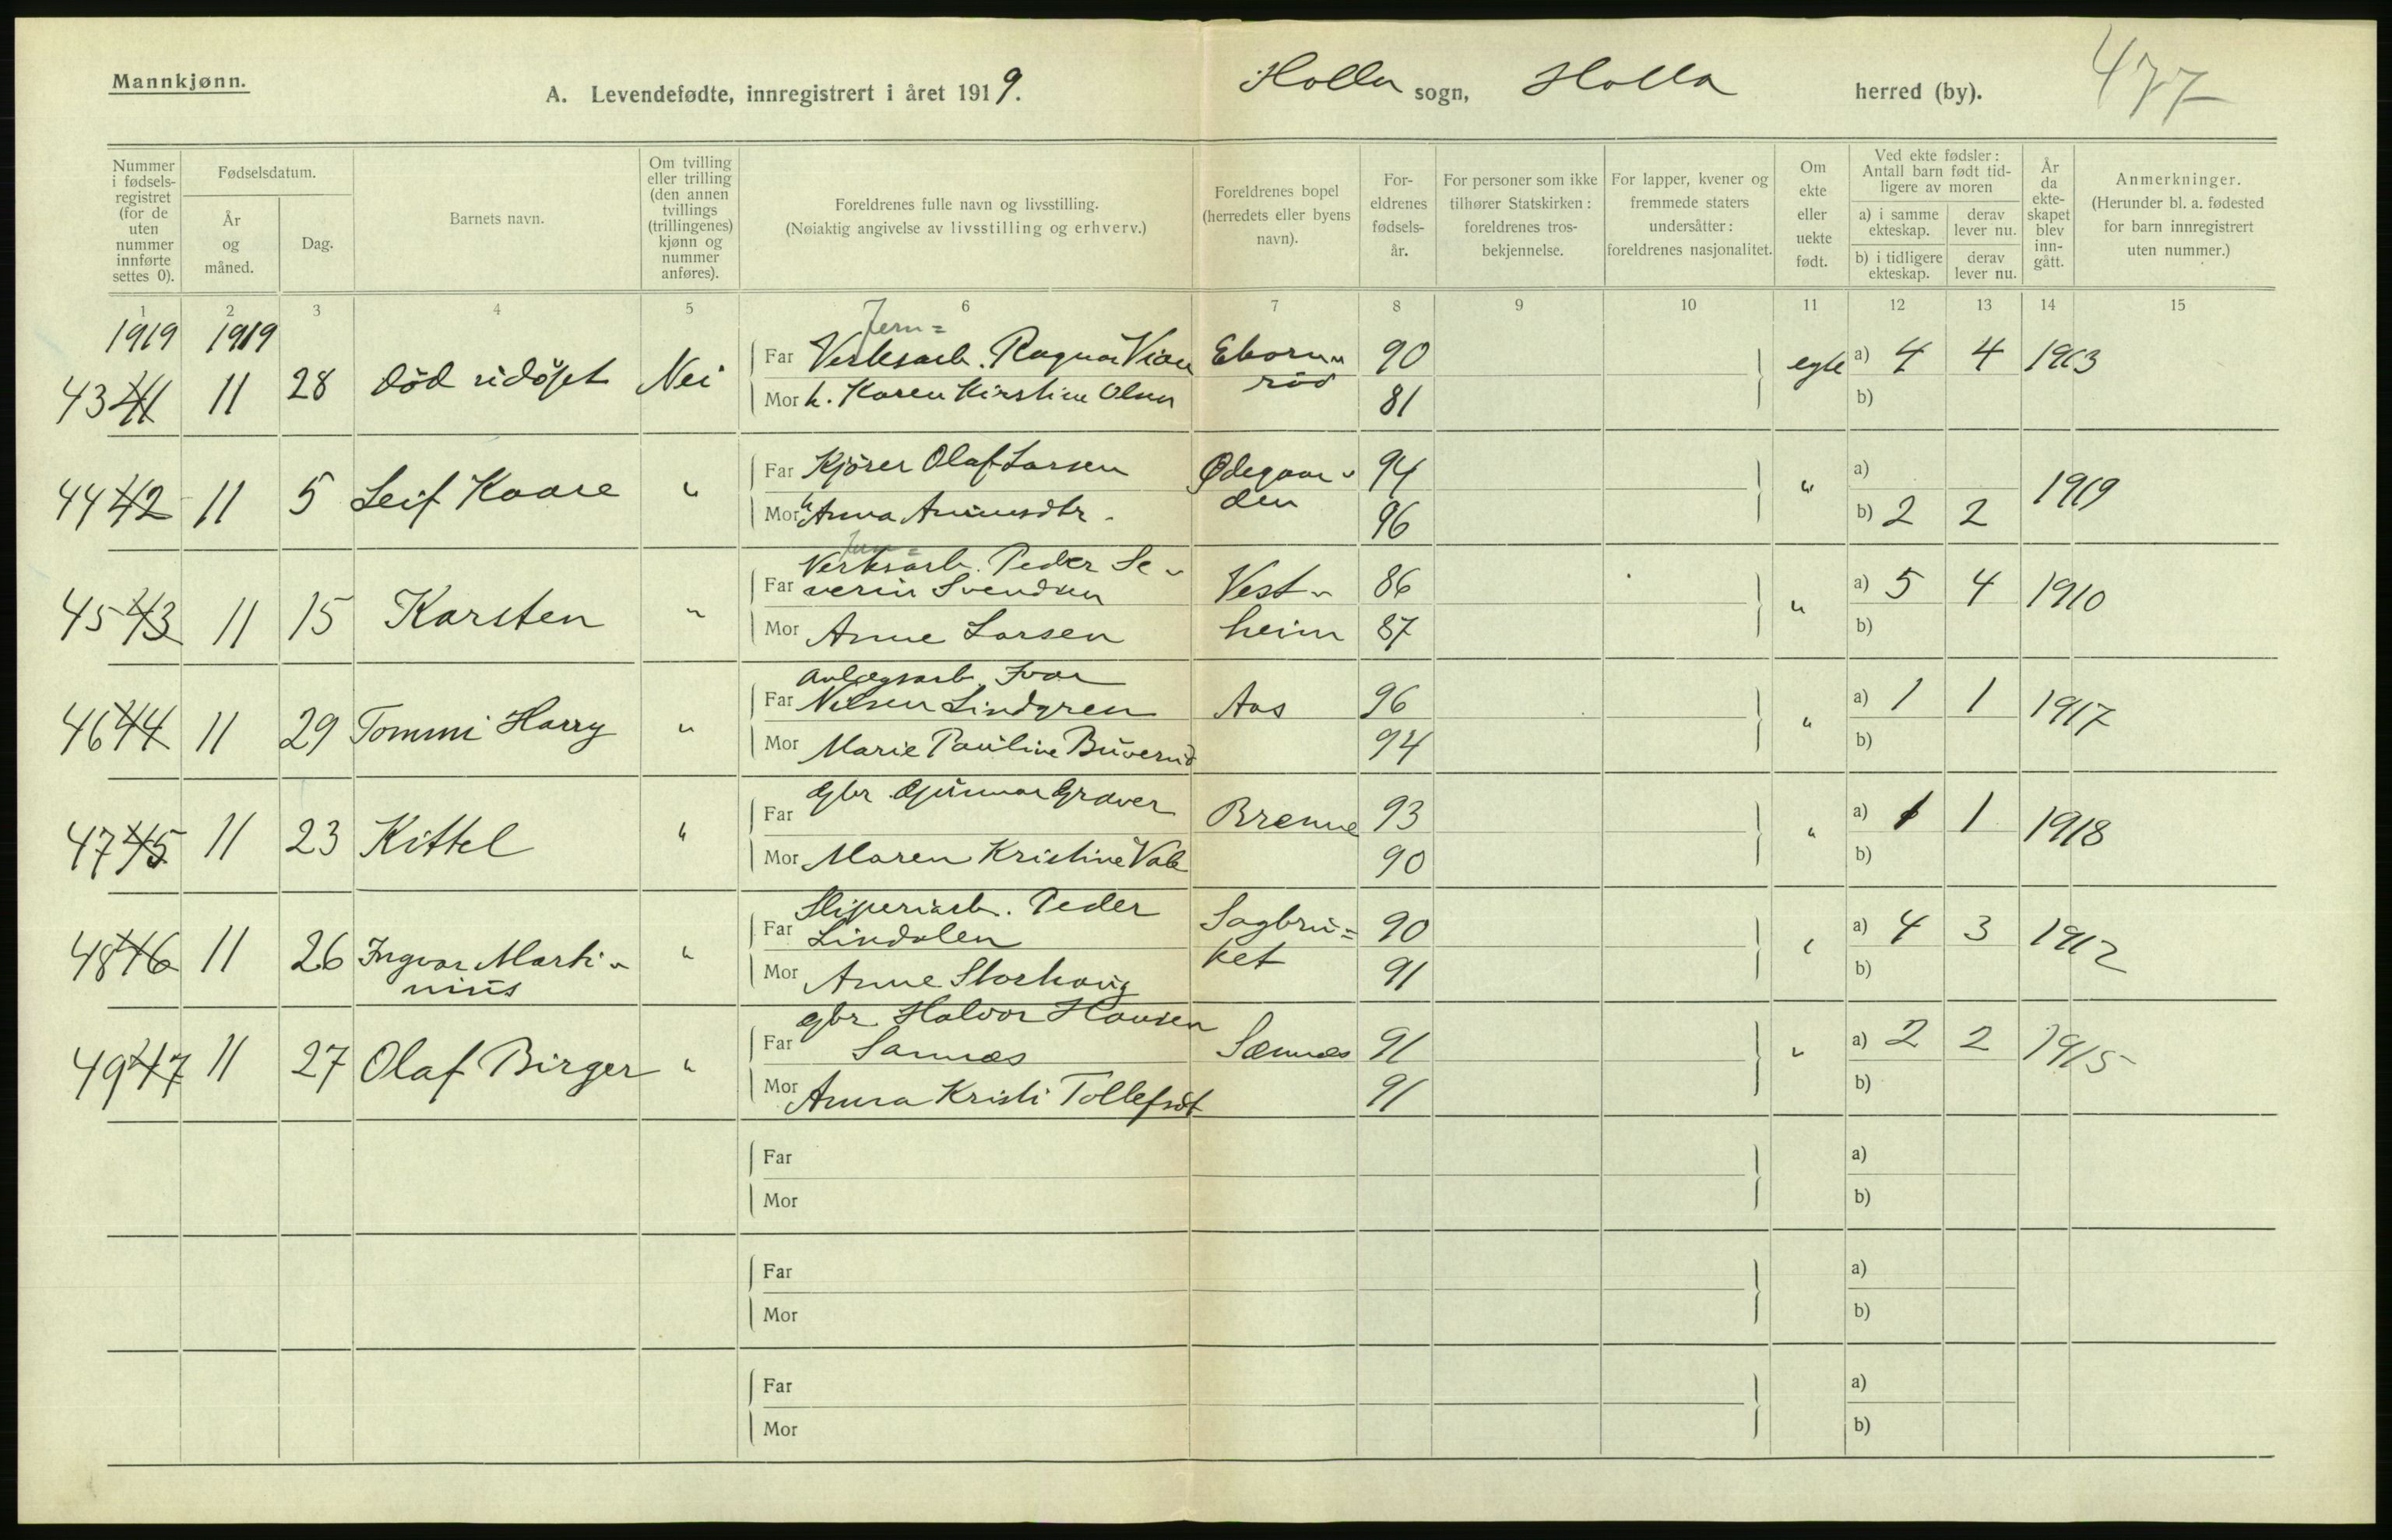 Mannkjønn.
A. Levendefødte, innregistrert i året 1919.
Holla sogn, Holla herred (by).
477
Nummer i fødselsregistret (for de uten nummer innførte settes 0).
Fødselsdatum.
År og måned.
Dag.
Barnets navn.
Om tvilling eller trilling (den annen tvillings (trillingenes) kjønn og nummer anføres).
Foreldrenes fulle navn og livsstilling.
(Nøiaktig angivelse av livsstilling og erhverv.)
Foreldrenes bopel (herredets eller byens navn).
Foreldrenes fødselsår.
For personer som ikke tilhører Statskirken: foreldrenes trosbekjennelse.
For lapper, kvener og fremmede staters undersåtter: foreldrenes nasjonalitet.
Om ekte eller uekte født.
Ved ekte fødsler: Antall barn født tidligere av moren
a) i samme ekteskap.
derav lever nu.
b) i tidligere ekteskap.
derav lever nu.
År da ekteskapet blev inngått.
Anmerkninger.
(Herunder bl. a. fødested for barn innregistrert uten nummer.)
1 2 3 4 5 6 7 8 9 10 11 12 13 14 15
1919 1919
Jern=
43 41 11 28 død udøpt Nei
Far Verksarb. Ragnar 90 egte a) 4 4 1903
Mor h. Karen Kirstine Olsen 81 b)
44 42 11 5 Leif Kaare "
Far Kjører Olaf Larsen Ødegaar- 94 " a) 1919
Mor h. Anna den 96 b) 2 2
45 43 11 15 Karsten "
Jern=
Verksarb. Peder Se-
Far verin Svendsen Vest- 86 " a) 5 4 1910
Mor Anne Larsen heim 87 b)
46 44 11 29 Tommi Harry "
Anlægsarb. Ivar
Far Nilsen Lindgren Aas 96 " a) 1 1 1917
Mor Marie Pauline Buverud 94 b)
47 45 11 23 Kittel "
Far Gbr Gunnar Graver Brenne 93 " a) 1 1 1918
Mor Maren Kristine Vale 90 b)
48 46 11 26 Ingvar Marti-
nius "
Sliperiarb. Peder
Far Lindalen Sagbru= 90 " a) 4 3 1912
Mor Anne Storhaug ket 91 b)
49 47 11 27 Olaf Birger "
Gbr. Halvor Hansen
Far Sannæs Sannæs 91 " a) 2 2 1915
Mor Anna Kristi Tollefsdt 91 b)
Far a)
Mor b)
Far a)
Mor b)
Far a)
Mor b)